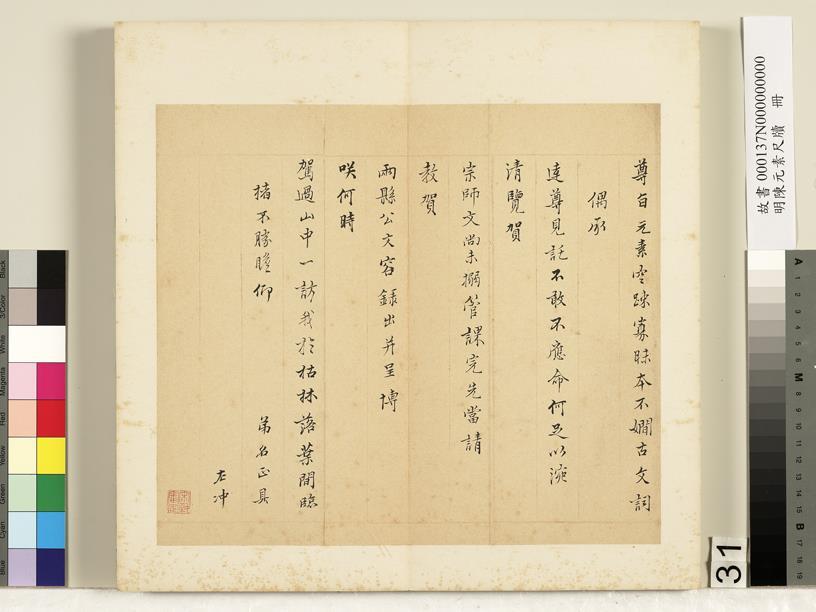 尊白元素空疎寡昧本不嫺古文詞
偶承
達尊見託不敢不應命何足以涴
清覽賀
宗師文尚未搦管課完先當請
教賀
兩縣公文容錄出并呈博
咲何時
駕過山中一訪我於枯林落葉間臨
楮不勝瞻仰
弟名正具
左冲
故書 000137N000000000
明陳元素尺牘 冊
31
Black
3/Color
White
Magenta
Red
Yellow
Green
Cyan
Blue
A 1 2 3 4 5 6 M 8 9 10 11 12 13 14 15 B 17 18 19